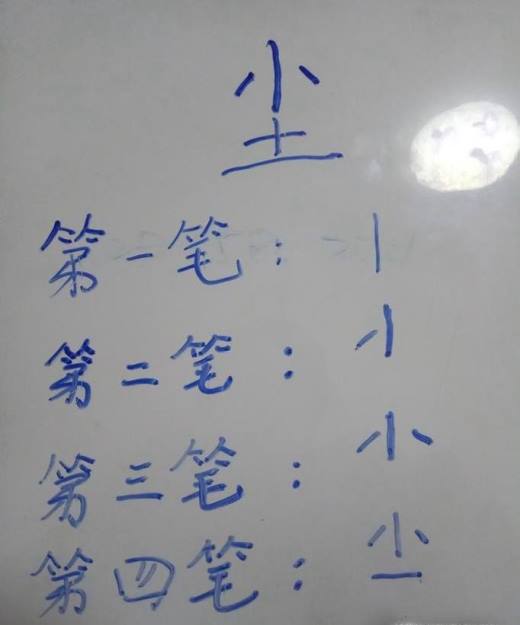 尘
第一笔：丨
第二笔：
第三笔：⺌
第四笔：